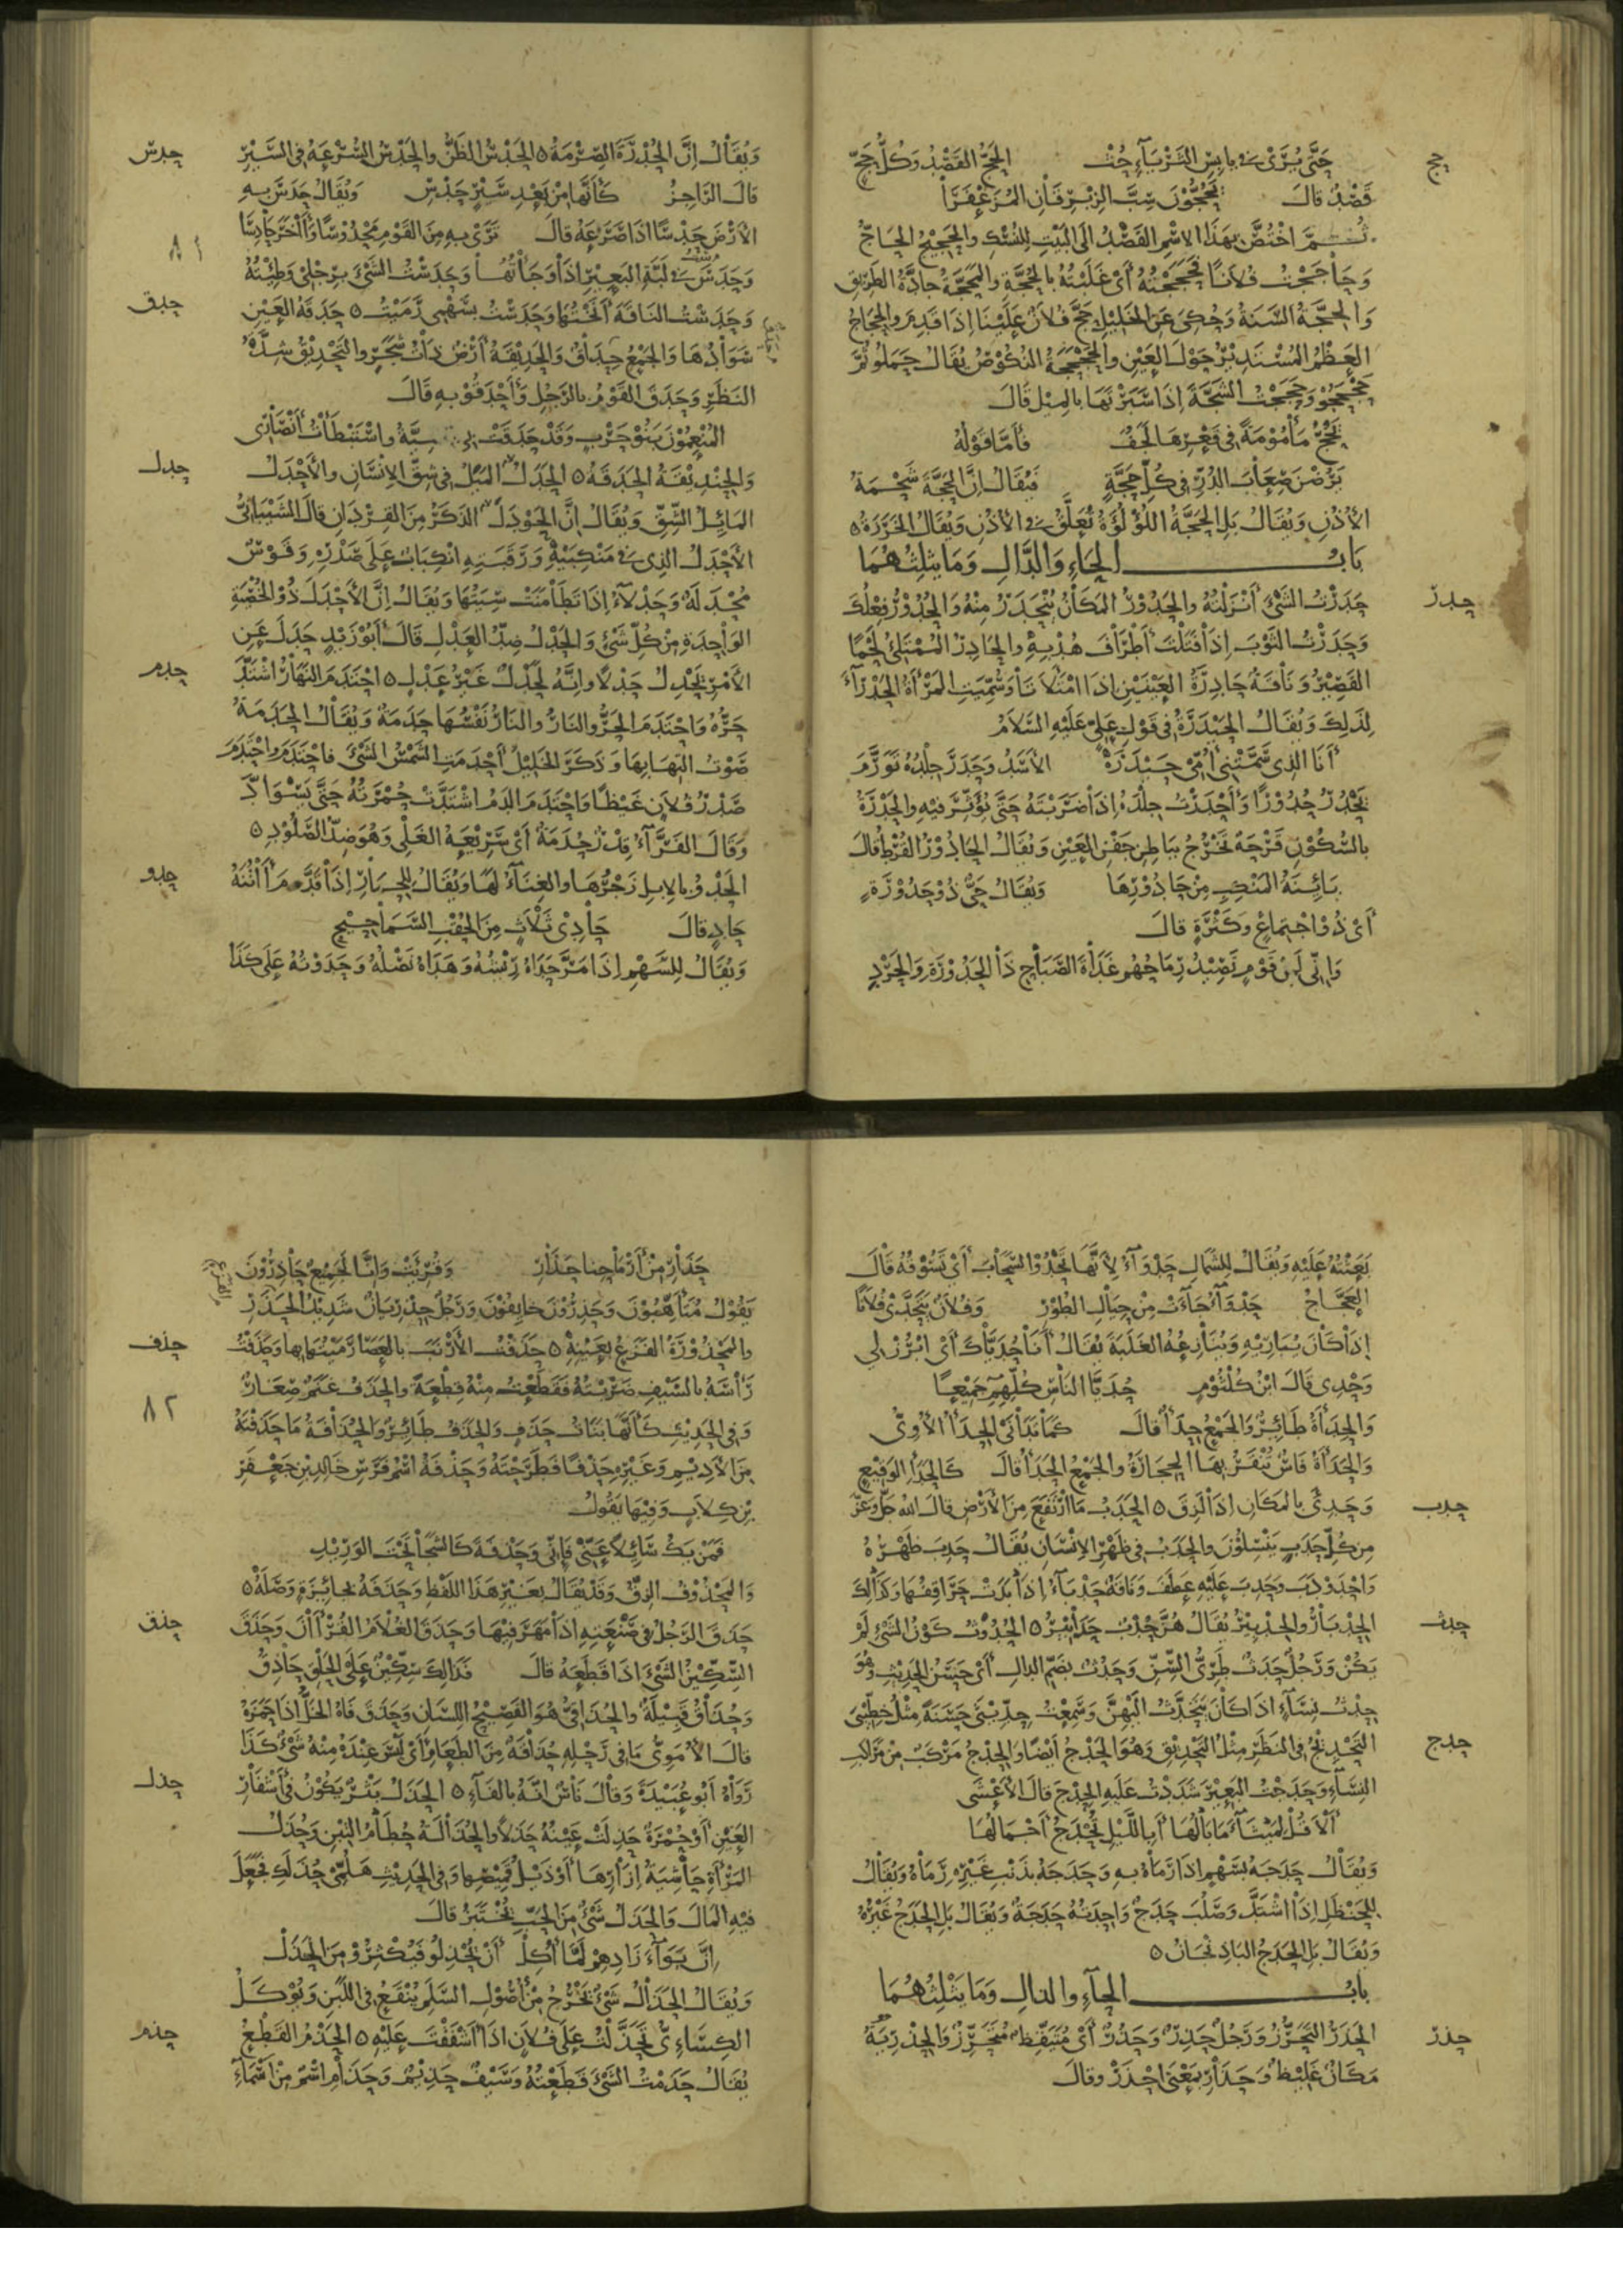 حج
حتى يرى في يابس الثرياء حث الحج القصد وكل حج
قصد قال يحجون سب الزبرقان المزعفرا
ثم اختص بهذا الاسم القصد الى البيت للنسك والحجيج الحاج
وحاججت فلانا فحججته أي غلبته بالحجة والمحجة جادة الطريق
والحجة السنة وحكى عن الخليل حج فلان علينا اذا قدم والحجاج
العظم المستدير حول العين والحجحجة النكوص يقال حملوا ثم
حجحجوا وحججت الشجة اذا سبرتها بالميل قال
يحج مأمومة في قعرها لجف فأما قوله
يرضن صعاب الدر في كل حجة فيقال ان الحجة شحمة
الأذن ويقال بل الحجة اللؤلؤة تعلق في الأذن ويقال الخرزة ٥
باب الحاء والدال وما يثلثهما
حدر
حدرت الشئ أنزلته والحدور المكان ينحدر منه والحدور فعلك
وحدرت الثوب اذا فتلت أطراف هدبه والحادر الممتلئ لحما
القصير وناقة حادرة العينين اذا امتلاتا وسميت المرأة الحدراء
لذلك ويقال الحيدرة في قول علي عليه السلام
أنا الذي سمتني أمي حيدره الأسد وحدر جلده تورم
يحدر حدورا وأحدرت جلده اذا ضربته حتى يؤثر فيه والحدرة
بالسكون قرحة تخرج بباطن جفن العين ويقال الحادور القرط قال
بائنة المنكب من حادورها ويقال حي ذو حدورة
أي ذو اجتماع وكثرة قال
واني لمن قوم تصيد رماحهم غداة الصباح ذا الحدورة والحرد
ويقال ان الحدرة الصرمة ٥ الحدس الظن والحدس السرعة في السير
حدس
قال الراجز كأنها من بعد سير حدس ويقال حدس به
الأرض حدسا اذا صرعه قال ترى به من القوم محدوسا وأخر حادسا
٨١
وحدس في لبة البعير اذا وجأتها وحدست الشئ برجلي وطئته
وحدست الناقة أنختها وحدست بسهمي رميت ٥ حدقة العين
حدق
سوادها والجمع حداق والحديقة أرض ذات شجر والتحديق شدة
النظر وحدق القوم بالرجل وأحدقوا به قال
المنعمون بنو حرب وقد حدقت بي المنية واستبطأت أنصاري
والحنديقة الحدقة ٥ الحدل الميل في شق الانسان والأحدل
حدل
المائل الشق ويقال ان الحودل الذكر من القردان قال الشيباني
الأحدل الذي في منكبيه ورقبته انكباب على صدره وقوس
محدلة وحدلاء اذا تطامنت سيتها ويقال ان الأحدل ذو الخصية
الواحدة من كل شئ والحدل ضد العدل قال أبو زيد حدل عن
الأمر يحدل حدلا وانه لحدل غير عدل ٥ احتدم النهار اشتد
حدم
حره واحتدم الحر والنار والنار نفسها حدمة ويقال الحدمة
صوت التهابها وذكر الخليل أحدمت الشمس الشئ فاحتدم واحتدم
صدر فلان غيظا واحتدم الدم اشتدت حمرته حتى يسواد
وقال الفراء قدر حدمة أي سريعة الغلي وهو ضد الصلود ٥
الحدو بالابل زجرها والغناء لها ويقال للحمار اذا قدم أتنه
حدو
حاد قال حادي ثلاث من الحقب السماحيج
ويقال للسهم اذا مر حداه ريشه وهداه نصله وحدوته على كذا
بعثته عليه ويقال للشمال حدواء لانها تحدوا السحاب أي تسوقه قال
العجاج حدواء جاءت من جبال الطور وفلان يتحدى فلانا
اذا كان يباريه وينازعه الغلبة يقال أنا حدياك أي ابرز لي
وحدي قال ابن كلثوم حديا الناس كلهم جميعا
والحدأة طائر والجمع حدأ قال كما تدانى الحدأ الأوي
والحدأة فأس تنقر بها الحجارة والجمع الحدأ قال كالحدأ الوقيع
وحدئ بالمكان اذا لزق ٥ الحدب ما ارتفع من الأرض قال الله جل وعز
حدب
من كل حدب ينسلون والحدب في ظهر الانسان يقال حدب ظهره
واحدودب وحدب عليه عطف وناقة حدباء اذا بدت حراقفها وكذلك
الحدبار والحدبير يقال هن حدب حدابير ٥ الحدوث كون الشئ لم
حدث
يكن ورجل حدث طري السن وحدث بضم الدال أي حسن الحديث وهو
حدث نساء اذا كان يتحدث اليهن وسمعت حديثى حسنة مثل خطيبى
التحديج في النظر مثل التحديق وهو الحدج أيضا والحدج مركب من مراكب
حدج
النساء وحدجت البعير شددت عليه الحدج قال الأعشى
ألا قل لميثاء ما بالها أبالليل تحدج أحمالها
ويقال حدجه بسهم اذا رماه به وحدجه بذنب غيره رماه ويقال
للحنظل اذا اشتد وصلب حدج واحدته حدجة ويقال بل الحدج غيره
ويقال بل الحدج الباذنجان ٥
باب الحاء والذال وما يثلثهما
الحذر التحرز ورجل حذر وحذر أي متيقظ متحرز والحذرية
حذر
مكان غليظ وحذار بمعنى احذر وقال
حذار من أرماحنا حذار وقرئت وانا لجميع حاذرون
يقول متأهبون وحذرون خايفون ورجل حذريان شديد الحذر
والمحذورة الفزع بعينه ٥ حذفت الأرنب بالعصا رميتها بها وحذفت
حذف
رأسه بالسيف ضربته فقطعت منه قطعة والحذف غنم صغار
٨٢
وفي الحديث كأنها بنات حذف والحذف طائر والحذافة ما حذفته
من الأديم وغيره حذفا فطرحته وحذفة اسم فرس خالد بن جعفر
بن كلاب وفيها يقول
فمن يك سائلا عني فاني وحذفة كالشجا تحت الوريد
والمحذوف الزق وقد يقال بغير هذا اللفظ وحذفه بجائزة وصله ٥
حذق الرجل في صنعته اذا مهر فيها وحذق الغلام القرأان وحذق
حذق
السكين الشئ اذا قطعه قال فذلك سكين على الحلق حاذق
وحذاق قبيلة والحذاقي هو الفصيح اللسان وحذق فاه الخل اذا حمزه
قال الأموي ما في رحله حذاقة من الطعام أي ليس عنده منه شئ كذا
رواه أبو عبيدة وقال ناس انه بالفاء ٥ الحذل بثر يكون في أشفار
حذل
العين أو حمرة حذلت عينه حذلا والحذالة حطام التبن وحذل
المرأة حاشية ازارها أو ذيل قميصها وفي الحديث هلمي حذلك فجعل
فيه المال والحذل شئ من الحب يختبز قال
ان بواء زادهم لما أكل أن تحذلوا فيكثروا من الحذل
ويقال الحذال شئ يخرج من أصول السلم ينقع في اللبن ويؤكل
الكسائي تحذلت على فلان اذا أشفقت عليه ٥ الحذم القطع
حذم
يقال حذمت الشئ قطعته وسيف حذيم وحذام اسم من أسماء